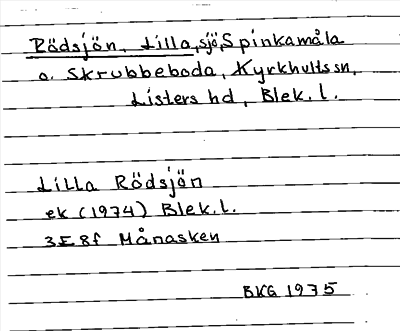 Rödsjön, Lilla, sjö, Spinkamåla
o. Skrubbeboda, Kyrkhults sn,
Listers hd, Blek. l.
Lilla Rödsjön
ek (1974) Blek. l.
3E8f Månasken
BKG 1975